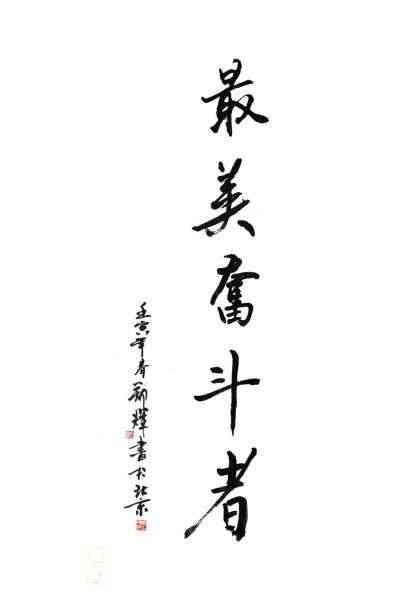 最美奮斗者
壬寅年春郑辉書於北京